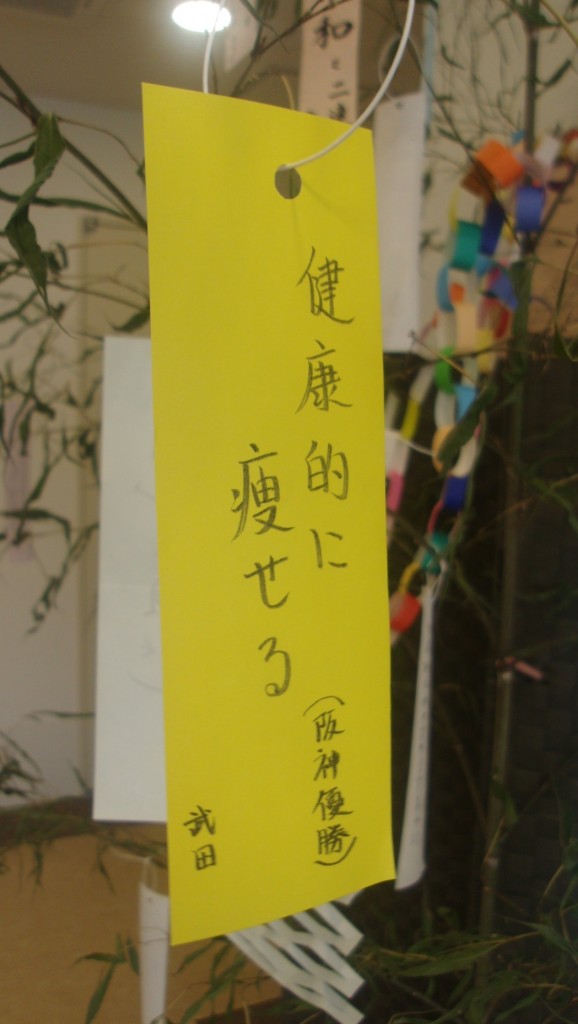 健康的に
痩せる
(阪神優勝)
武田
和と二